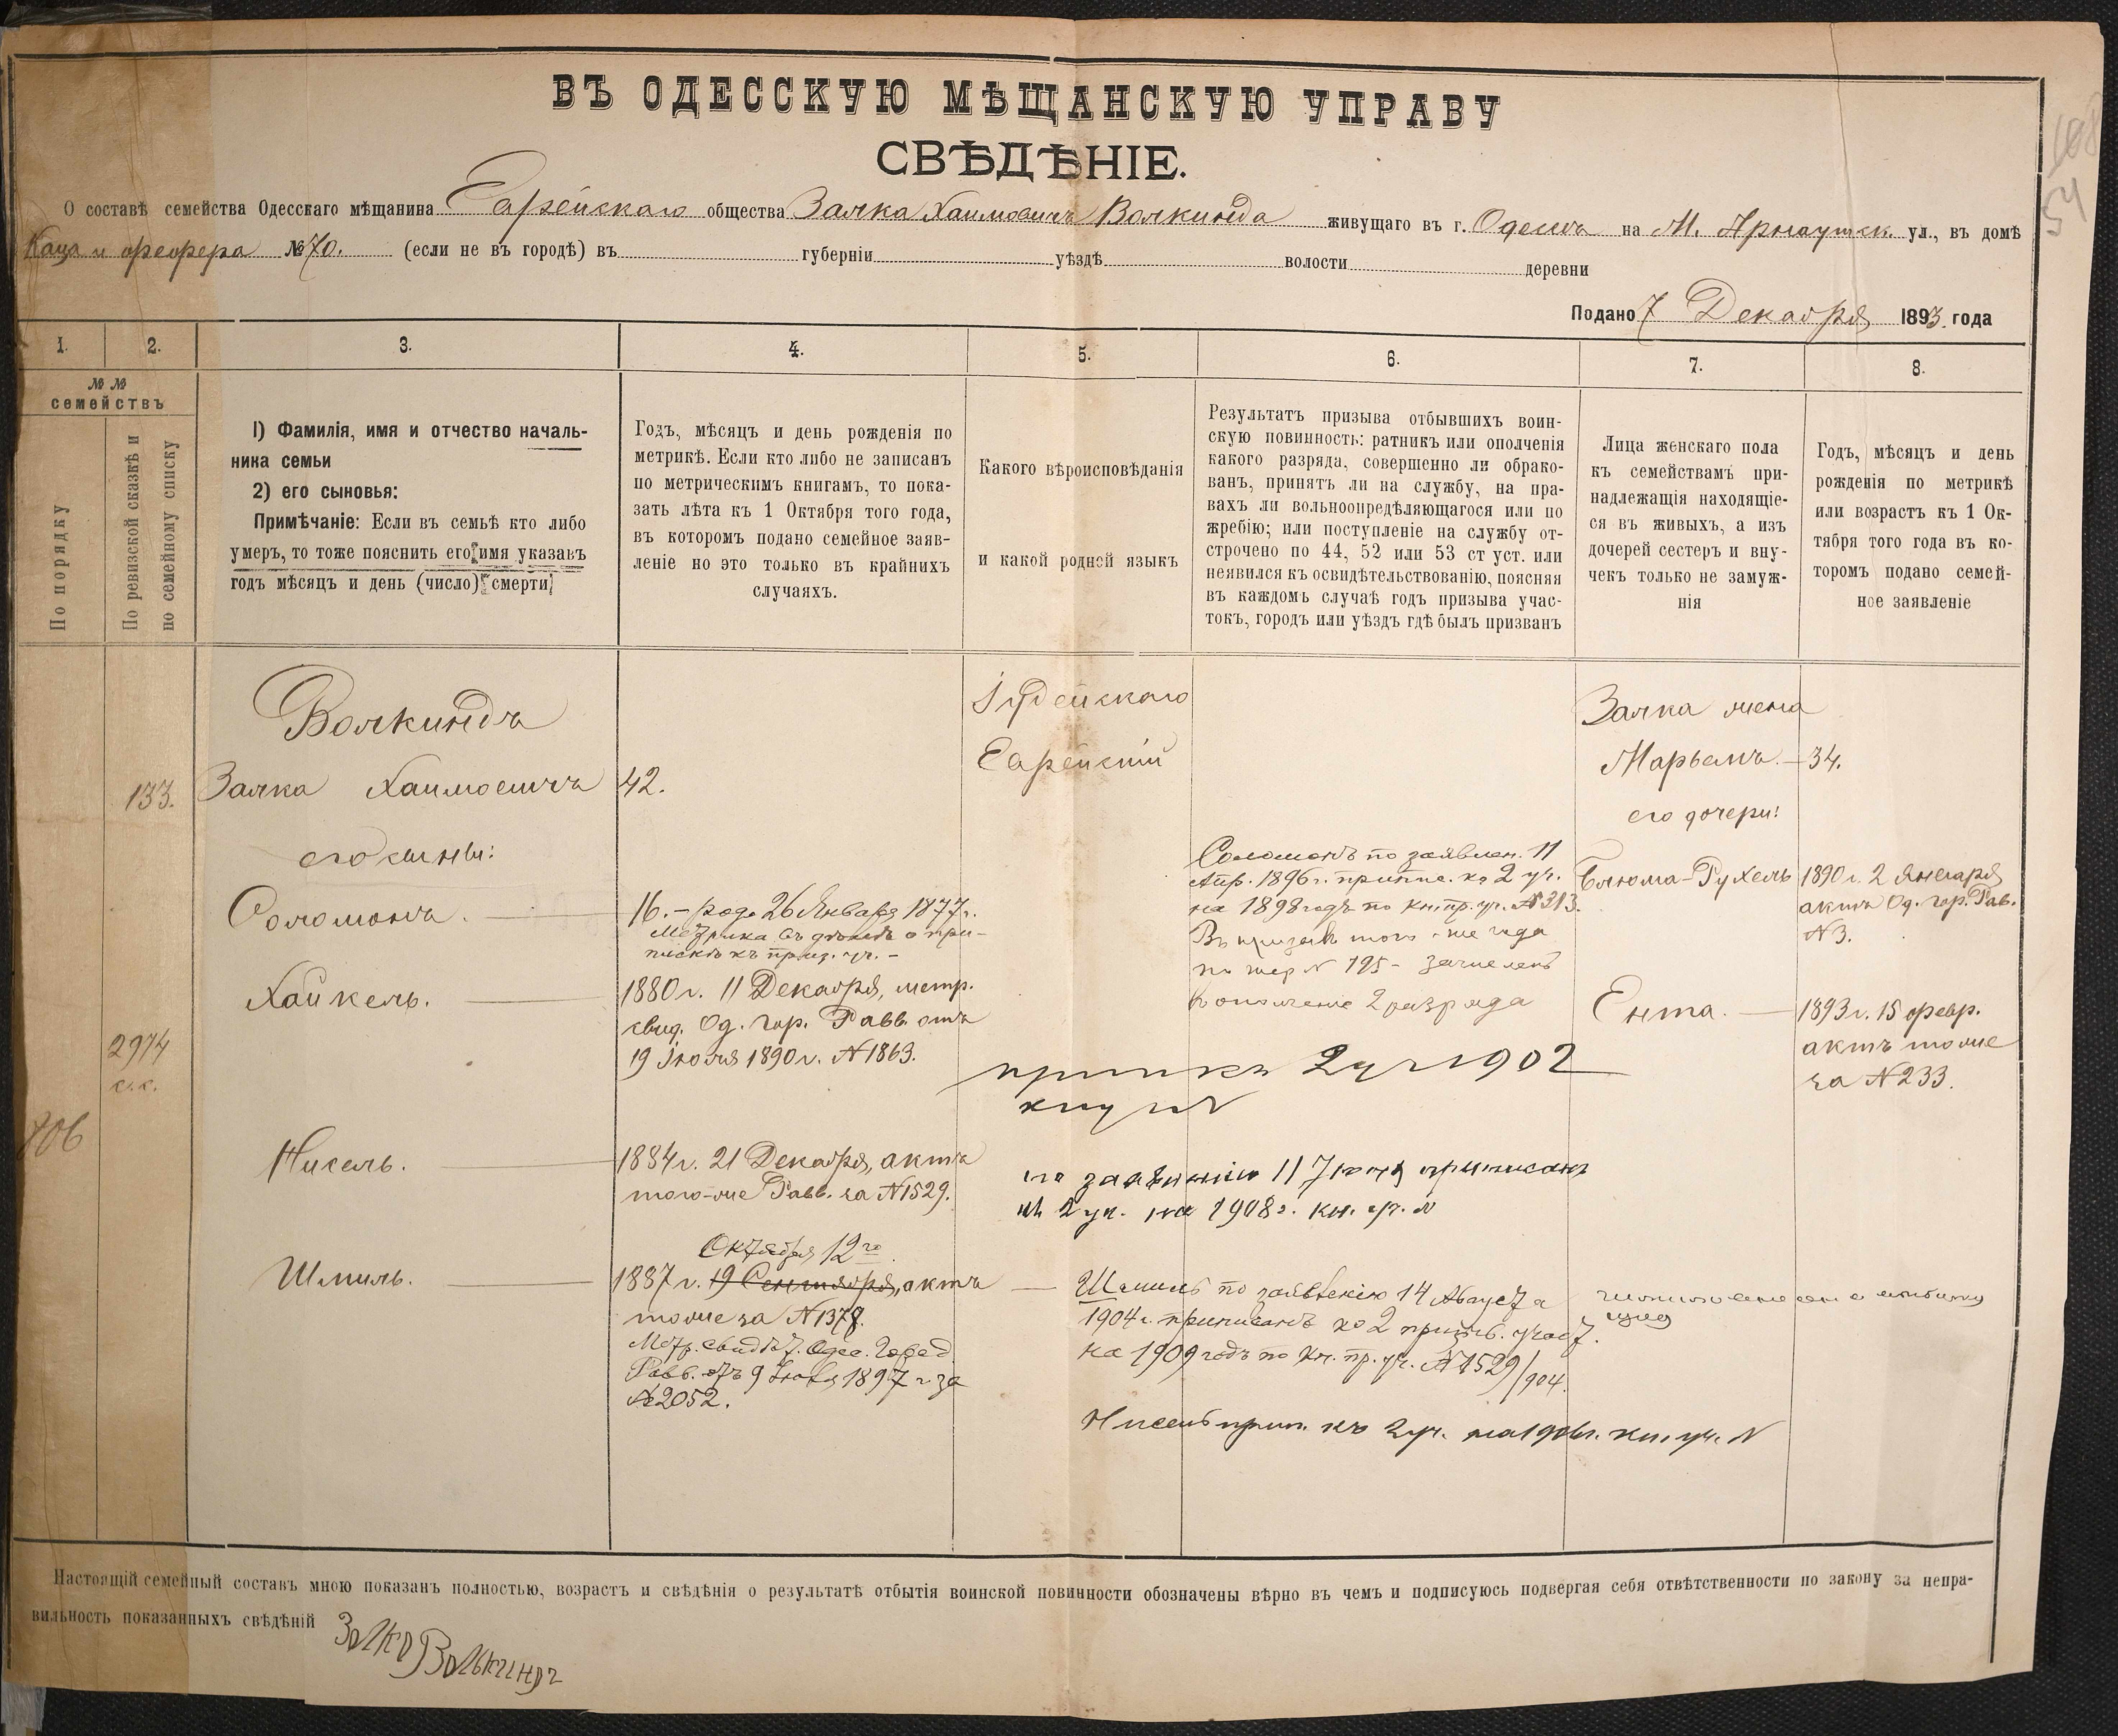 ВЪ ОДЕССКУЮ МѢЩАНСКУЮ УПРАВУ
СВѢДѢНІЕ.
О составѣ семейства Одесскаго мѣщанина Еврейскаго общества Залка Хаимовичъ Волкинда живущаго въ г. Одессѣ на М. Арнаутск. ул., въ домѣ
Каца и Фефера №70. (если не въ городѣ) въ губерніи уѣздѣ волости деревни
Подано 7 Декабря 1893 года
1. 2. 3. 4. 5. 6. 7. 8.
№ №
семействъ
По порядку
По ревизской сказкѣ и
по семейному списку
1) Фамилія, имя и отчество началь-
ника семьи
2) его сыновья:
Примѣчаніе: Если въ семьѣ кто либо
умеръ, то тоже пояснить его имя указавъ
годъ мѣсяцъ и день (число) смерти
Годъ, мѣсяцъ и день рожденія по
метрикѣ. Если кто либо не записанъ
по метрическимъ книгамъ, то пока-
зать лѣта къ 1 Октября того года,
въ которомъ подано семейное заяв-
леніе но это только въ крайнихъ
случаяхъ.
Какого вѣроисповѣданія
и какой родной языкъ
Результатъ призыва отбывшихъ воин-
скую повинность: ратникъ или ополченія
какого разряда, совершенно ли обрако-
ванъ, принятъ ли на службу, на пра-
вахъ ли вольноопредѣляющагося или по
жребію; или поступленіе на службу от-
строчено по 44, 52 или 53 ст уст. или
неявился къ освидѣтельствованію, поясняя
въ каждомъ случаѣ годъ призыва учас-
токъ, городъ или уѣздъ гдѣ былъ призванъ
Лица женскаго пола
къ семействамъ при-
надлежащія находящіе-
ся въ живыхъ, а изъ
дочерей сестеръ и вну-
чекъ только не замуж-
нія
Годъ, мѣсяцъ и день
рожденія по метрикѣ
или возрастъ къ 1 Ок-
тября того года въ ко-
торомъ подано семей-
ное заявленіе
Волкиндъ
133. Залка Хаимовичъ 42.
его сыновья:
Соломонъ. 16. – род. 26 Января 1877 г.
Метрика въ дѣлѣ о при-
пискѣ къ приз. уч. –
Хайкель. 1880 г. 11 Декабря, метр.
свид. Од. гор. Равв. отъ
19 Іюля 1890 г. №1863.
2974
с.с.
706
Нисель. 1884 г. 21 Декабря, актъ
того-же Равв. за №1529.
Октября 12го
Шмиль. 1887 г. 19 Сентября, актъ
тоже за №1378.
Метр. свидѣт. Одес. Город.
Равв. отъ 9 Іюля 1897 г за
№2052.
Іудейскаго
Еврейскій
Соломонъ по заявлен. 11
Апр. 1896 г. припис. ко 2 уч.
на 1898 годъ по кн. пр. уч. №313.
Въ призывъ того же года
по жер № 195 – зачисленъ
в ополченіе 2 разряда
2 уч 1902
по заявленію 11 приписанъ
къ 2 уч. на 1908 г. кн. уч. №
Шмиль по заявленію 14 Августа
1904 г. приписанъ ко 2 призыв. участ.
на 1909 годъ по кн. пр. уч. №1529/904.
Нисель прип. къ 2 уч. на 1906 г. кн. уч. №
Залка жена
Марьемъ. – 34.
его дочери:
Блюма-Рухель 1890 г. 2 Января
актъ Од. гор. Рав.
№3.
Ента. 1893 г. 15 февр.
актъ тоже
за №233.
Настоящій семейный составъ мною показанъ полностью, возрастъ и свѣдѣнія о результатѣ отбытія воинской повинности обозначены вѣрно въ чемъ и подписуюсь подвергая себя отвѣтственности по закону за непра-
вильность показанныхъ свѣдѣній
Залко Волькиндъ
54